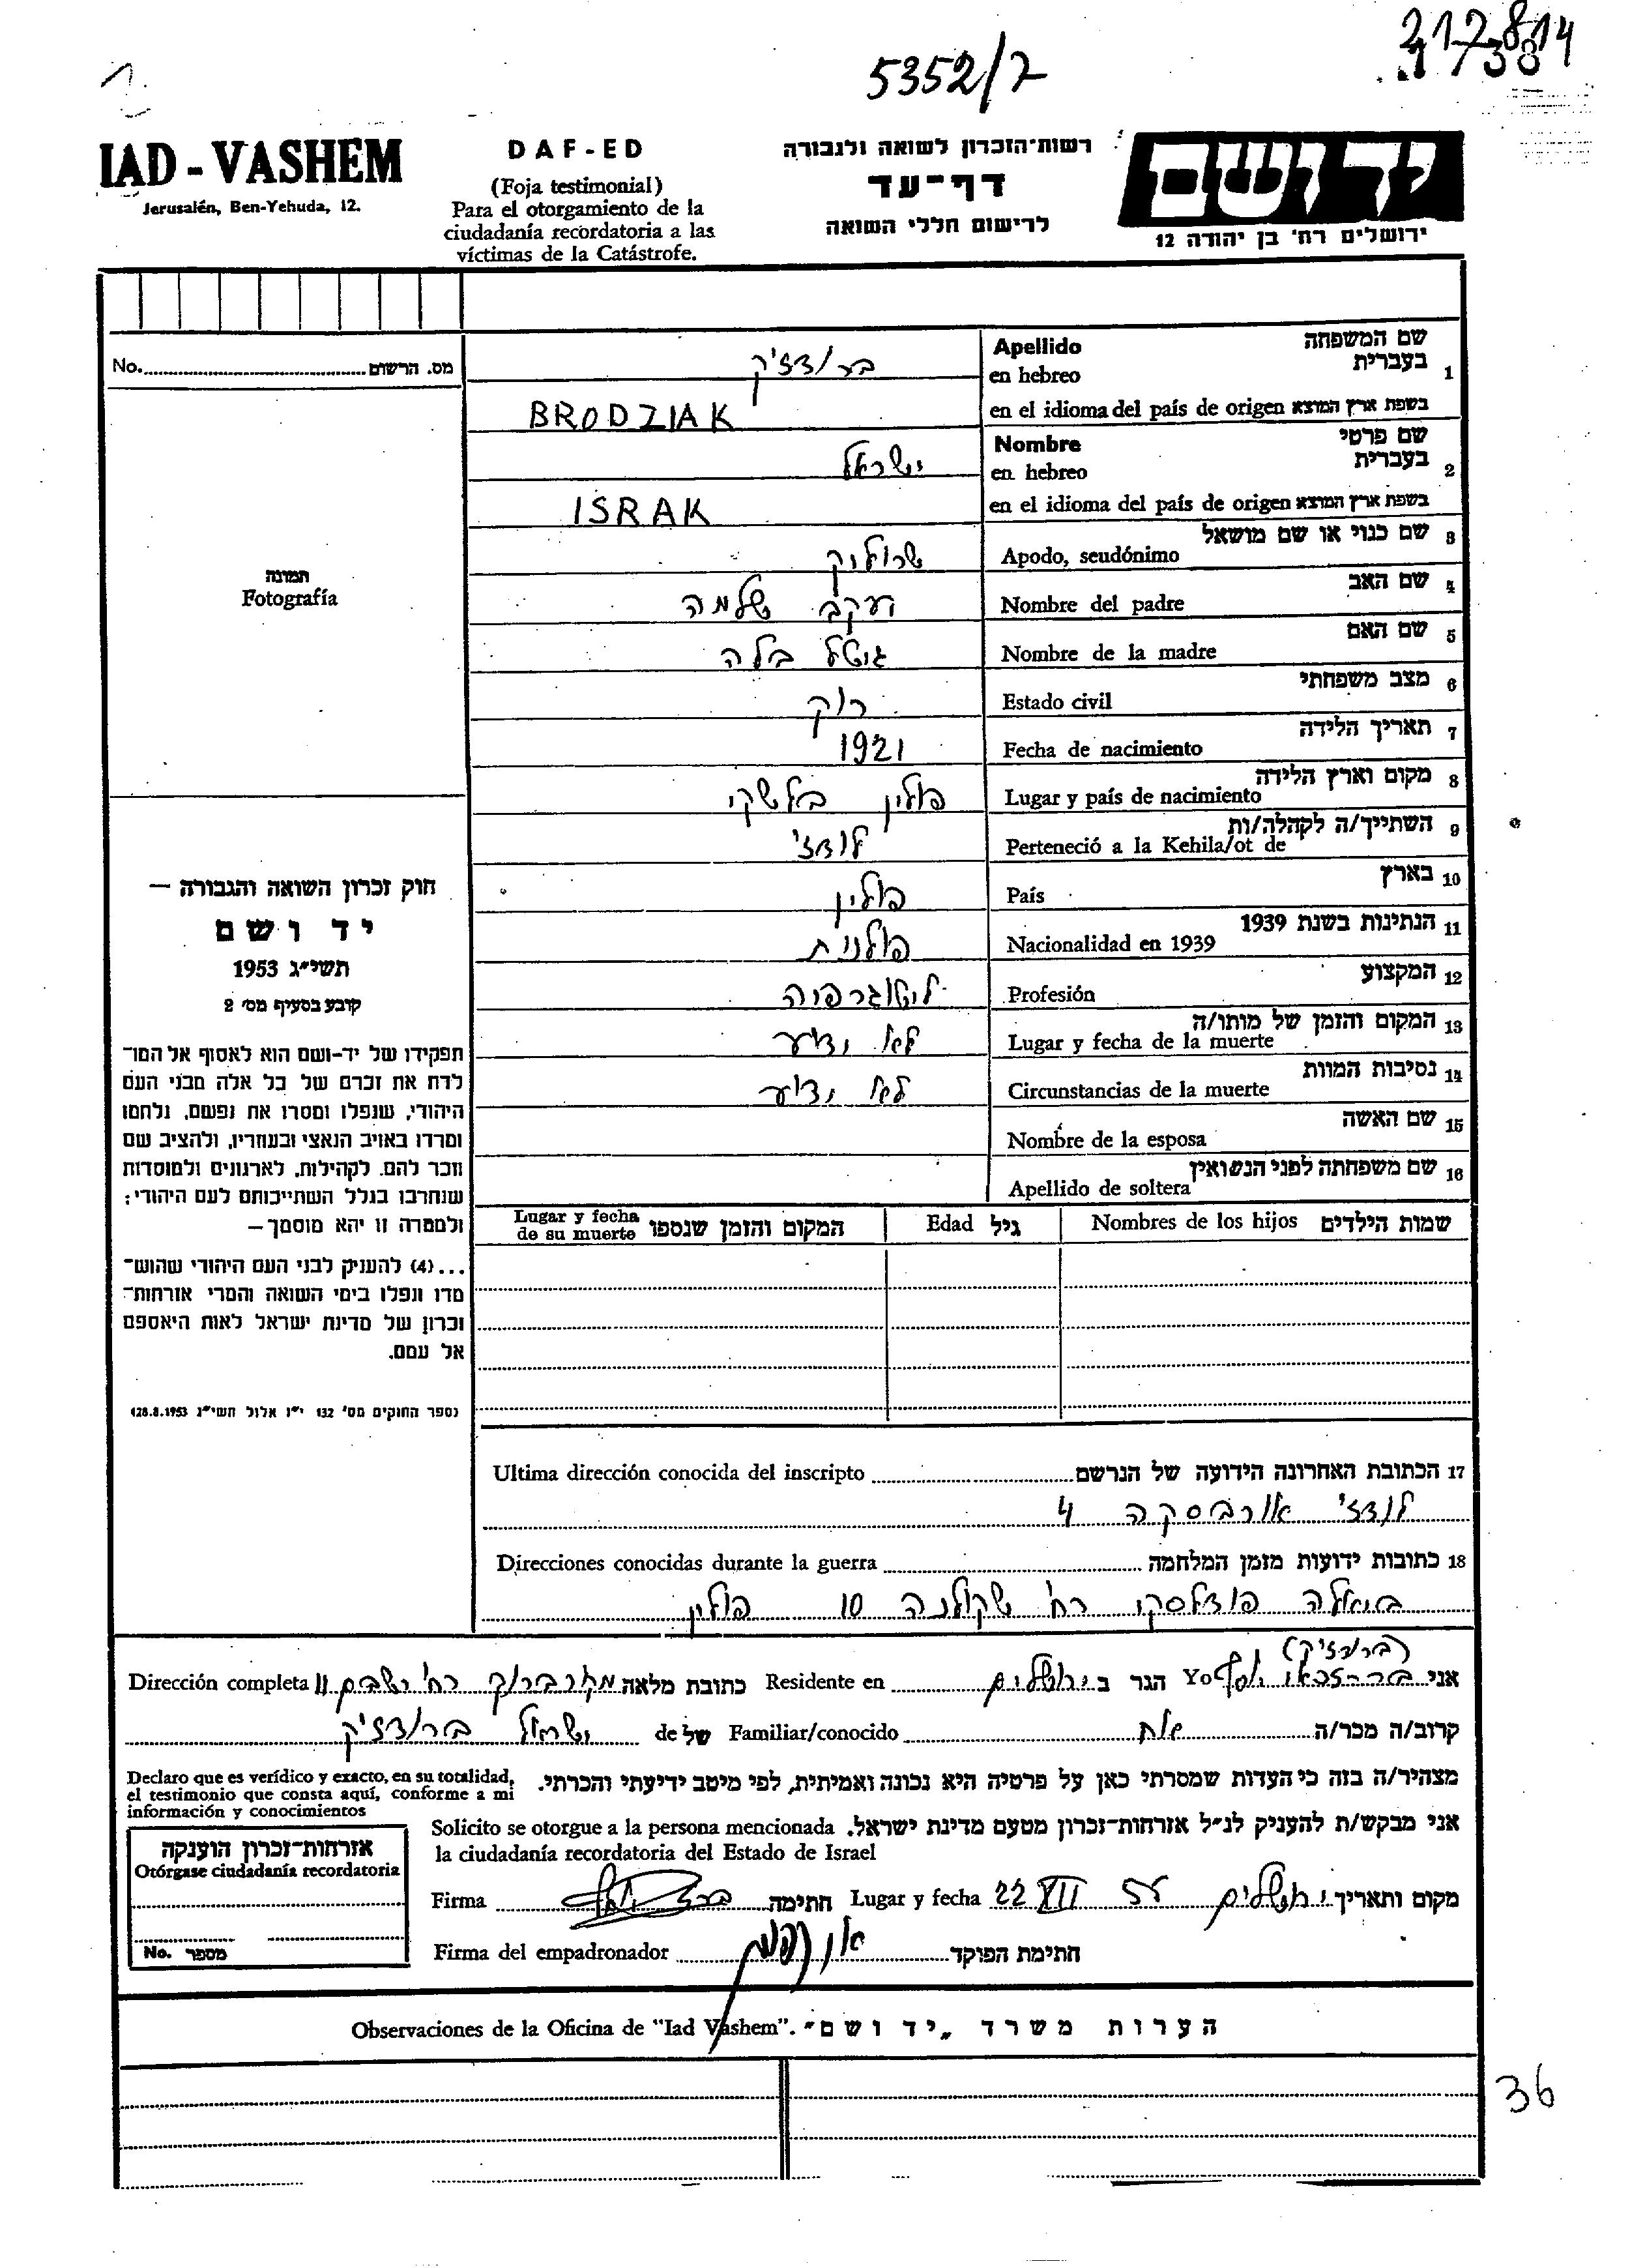 5352/7
IAD - VASHEM
Jerusalén, Ben-Yehuda, 12.
DAF-ED
(Foja testimonial)
Para el otorgamiento de la
ciudadanía recordatoria a las
víctimas de la Catástrofe.
רשות־הזכרון לשואה ולגבורה
דף־עד
לרישום חללי השואה
יד ושם
ירושלים רח' בן יהודה 12
No. מס. הרשום
תמונה
Fotografía
1 שם המשפחה
Apellido
בעברית
en hebreo
ברודז'יק
en el idioma del país de origen בשפת ארץ המוצא
BRODZIAK
2 שם פרטי
Nombre
בעברית
en hebreo
ישראל
en el idioma del país de origen בשפת ארץ המוצא
ISRAK
3 שם כנוי או שם מושאל
Apodo, seudónimo
שרוליק
4 שם האב
Nombre del padre
יעקב שלמה
5 שם האם
Nombre de la madre
גיטל בלה
6 מצב משפחתי
Estado civil
רוק
7 תאריך הלידה
Fecha de nacimiento
1921
8 מקום וארץ הלידה
Lugar y país de nacimiento
פולין
9 השתייך/ה לקהלה/ות
Perteneció a la Kehila/ot de
לודז'
10 בארץ
País
פולין
11 הנתינות בשנת 1939
Nacionalidad en 1939
פולנית
12 המקצוע
Profesión
ליטוגרפיה
13 המקום והזמן של מותו/ה
Lugar y fecha de la muerte
לא ידוע
14 נסיבות המוות
Circunstancias de la muerte
לא ידוע
15 שם האשה
Nombre de la esposa
16 שם משפחתה לפני הנשואין
Apellido de soltera
שמות הילדים Nombres de los hijos
גיל Edad
המקום והזמן שנספו Lugar y fecha
de su muerte
חוק זכרון השואה והגבורה —
יד ושם
תשי״ג 1953
קובע בסעיף מס' 2
תפקידו של יד-ושם הוא לאסוף אל המו־
לדת את זכרם של כל אלה מבני העם
היהודי, שנפלו ומסרו את נפשם, נלחמו
ומרדו באויב הנאצי ובעוזריו, ולהציב שם
וזכר להם. לקהילות, לארגונים ולמוסדות
שנחרבו בגלל השתייכותם לעם היהודי:
ולמטרה זו יהא מוסמך—
...(4) להעניק לבני העם היהודי שהוש־
מדו ונפלו בימי השואה והמרי אזרחות־
זכרון של מדינת ישראל לאות היאספם
אל עמם.
(ספר החוקים מס' 132 י״ז אלול תשי״ג 28.8.1953)
17 הכתובת האחרונה הידועה של הנרשם Ultima dirección conocida del inscripto
לודז' 4
18 כתובות ידועות מזמן המלחמה Direcciones conocidas durante la guerra
ביאלה פודלסקי רח' שקולנה 10 פולין
(ברודז'יק)
אני Yo יוסף הגר ב ירושלים Residente en כתובת מלאה רח' 11 Dirección completa
קרוב/ה מכר/ה אח Familiar/conocido של de ישראל ברודז'יק
מצהיר/ה בזה כי העדות שמסרתי כאן על פרטיה היא נכונה ואמיתית, לפי מיטב ידיעתי והכרתי.
Declaro que es verídico y exacto, en su totalidad,
el testimonio que consta aquí, conforme a mi
información y conocimientos
אני מבקש/ת להעניק לנ״ל אזרחות־זכרון מטעם מדינת ישראל.
Solicito se otorgue a la persona mencionada
la ciudadanía recordatoria del Estado de Israel
מקום ותאריך ירושלים 22 XII 55 Lugar y fecha חתימה Firma
חתימת הפוקד Firma del empadronador
אזרחות־זכרון הוענקה
Otórgase ciudadanía recordatoria
No. מספר
Observaciones de la Oficina de "Iad Vashem". הערות משרד „יד ושם"
36